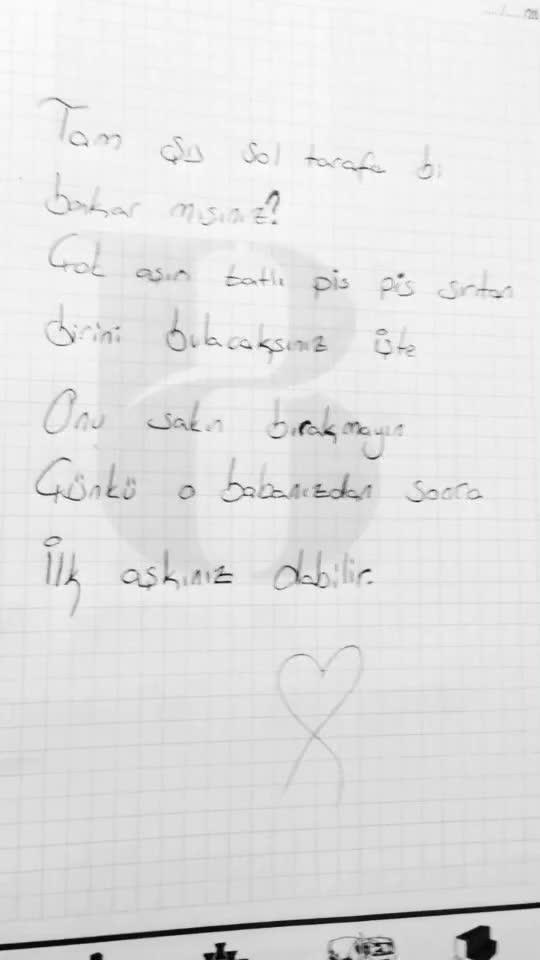 Tam şu sol tarafa bi
bakar mısınız?
Çok aşırı tatlı pis pis sırıtan
birini bulacaksınız işte
Onu sakın bırakmayın
Çünkü o babanızdan sonra
İlk aşkınız olabilir.